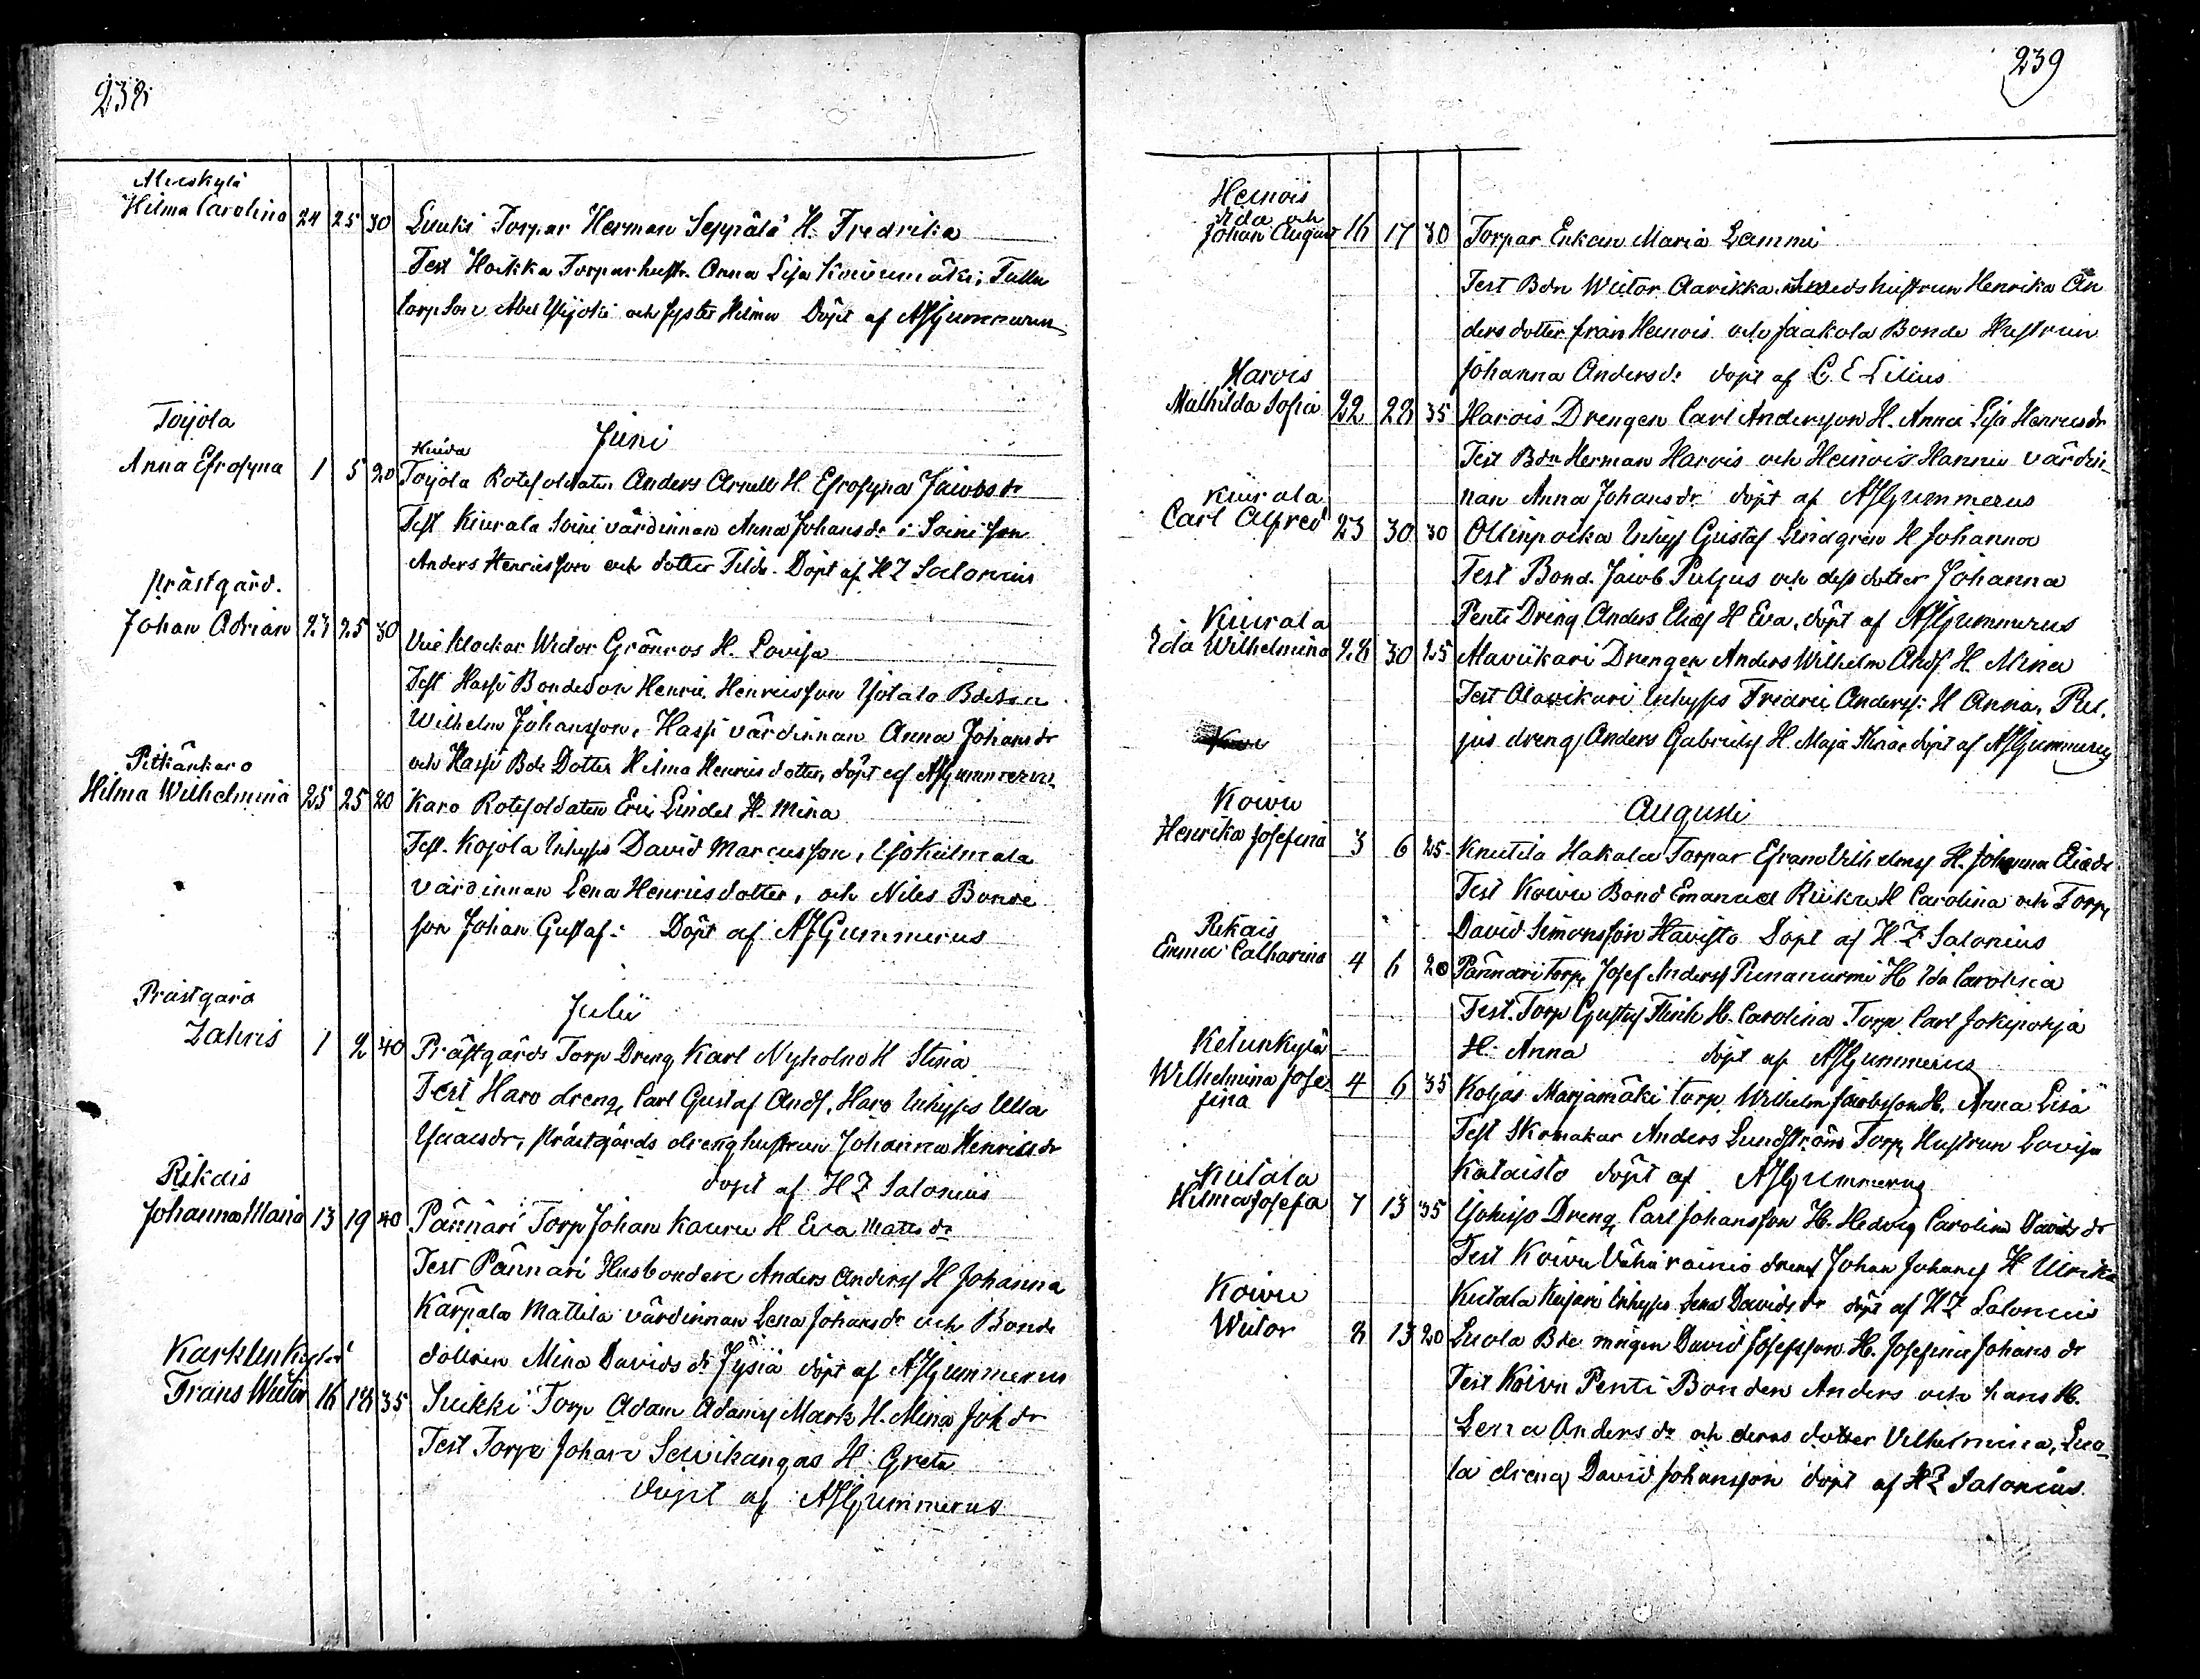 238
Hilma Carolina 24 25 30 Torpar Herman Seppälä H. Fredrika
Test Torpar hustr. Anna Lisa
och syster Hilma Döpt af AJGummerus
Juni
Toijola
Anna Efrosyna 1 5 20 Toijola Rotesoldaten Anders Arnell H. Efrosyna Jacobs dr
Test Kiurala Soini värdinnan Anna Johans dr i Soini son
Anders Henricsson och dotter Döpt af H Z Salonius
Prästgård.
Johan Adrian 23 25 30 Klockar Wictor Grönroos H. Lovisa
Test Hassi Bondeson Henric Henricsson
Wilhelm Johansson, Hassi värdinnan Anna Johans dr
och Hassi Bde Dotter Hilma Henricsdotter, döpt af AJGummerus
Pitkänkaro
Hilma Wilhelmina 25 25 20 Karo Rotesoldaten Eric Lindel H. Mina
Test. Kojola Inhyses David Marcusson,
värdinnan Lena Henricsdotter, och Niles Bonde
son Johan Gustaf: Döpt af AJGummerus
Julii
Prästgård
Zahris 1 2 40 Prästgårds Torp Dreng Karl Nyholm H Stina
Test Haro dreng Carl Gustaf Andf, Haro Inhyses Ulla
Isacsdr, Prästgårds drenghustrun Johanna Henricsdr
döpt af H Z Salonius
Rikais
Johanna Maria 13 19 40 Pännäri Torp Johan Kauru H Eva Matts dr
Test Pännäri Husbonden Anders Andersf H Johanna
Kärpälä Mattila värdinnan Lena Johans dr och Bonde
dottren Mina Davids dr döpt af AJGummerus
Frans Wictor 16 18 35 Torp Adam Adamsf Mark H. Mina Joh dr
Test Torpr Johan H. Greta
döpt af AJGummerus
239
Heinois
Ida och
Johan August 16 17 30 Torpar Enkan Maria Lammi
Test Bdn Wictor Aarikka hustrun Henrika An
dersdotter från Heinois och Jaakola Bonde Hustrun
Johanna Andersdr döpt af C E Lilius
Harois
Mathilda Sofia 22 28 35 Harois Drengen Carl Andersson H. Anna Lisa Henricsdr
Test Bdn Herman Harois och Heinois Hannu värdin
nan Anna Johansdr döpt af AJGummerus
Kiurala
Carl Alfred 23 30 30 Ollinpoika Inhys Gustaf Lindgren H Johanna
Test Bond. Jacob Puljus och dess dotter Johanna
Penti Dreng Anders Eliaf H Eva, döpt af AJGummerus
Kiurala
Ida Wilhelmina 28 30 25 Alaviikari Drengen Anders Wilhelm Andf H. Mina
Test Olavikari Inhyses Fredric Andersf. H Anna, Pul
jus dreng Anders Gabrielsf H. Maja Stina döpt af AJGummerus
Augusti
Koivu
Henrika Josefina 3 6 25 Knutila Hakala Torpar Efram Wilhelmsf H. Johanna Eliædr
Test Koivu Bond Emanuel H Carolina och Torp
David Simonsson Havisto Döpt af H Z Salonius
Rikais
Emma Catharina 4 6 20 Pännäri Torp Josef Andersf Punanurmi H Ida Carolina
Test. Torp Gustaf H. Carolina Torp Carl Jokipohja
H. Anna döpt af AJGummerus
Ketunkylä
Wilhelmina Jose
fina 4 6 35 Marjamäki torp Wilhelm Jacobsson H. Anna Lisa
Test Skomakar Anders Lundström Torp Hustrun Lovisa
Kataisto döpt af AJGummerus
Kutala
Hilma Josefa 7 13 35 Dreng Carl Johansson H. Hedvig Carolina Davids dr
Test Koivu Vähä rainio dreng Johan Johansf H Ulrika
Kutala Inhyses Lena Davids dr döpt af H Z Salonius
Koivu
Wictor 8 13 20 Luola Bde mågen David Josefsson H. Josefina Johans dr
Test Koivu Penti Bonden Anders och hans H.
Lena Anders dr och deras dotter Vilhelmina, Luo
la dreng David Johansson döpt af H Z Salonius